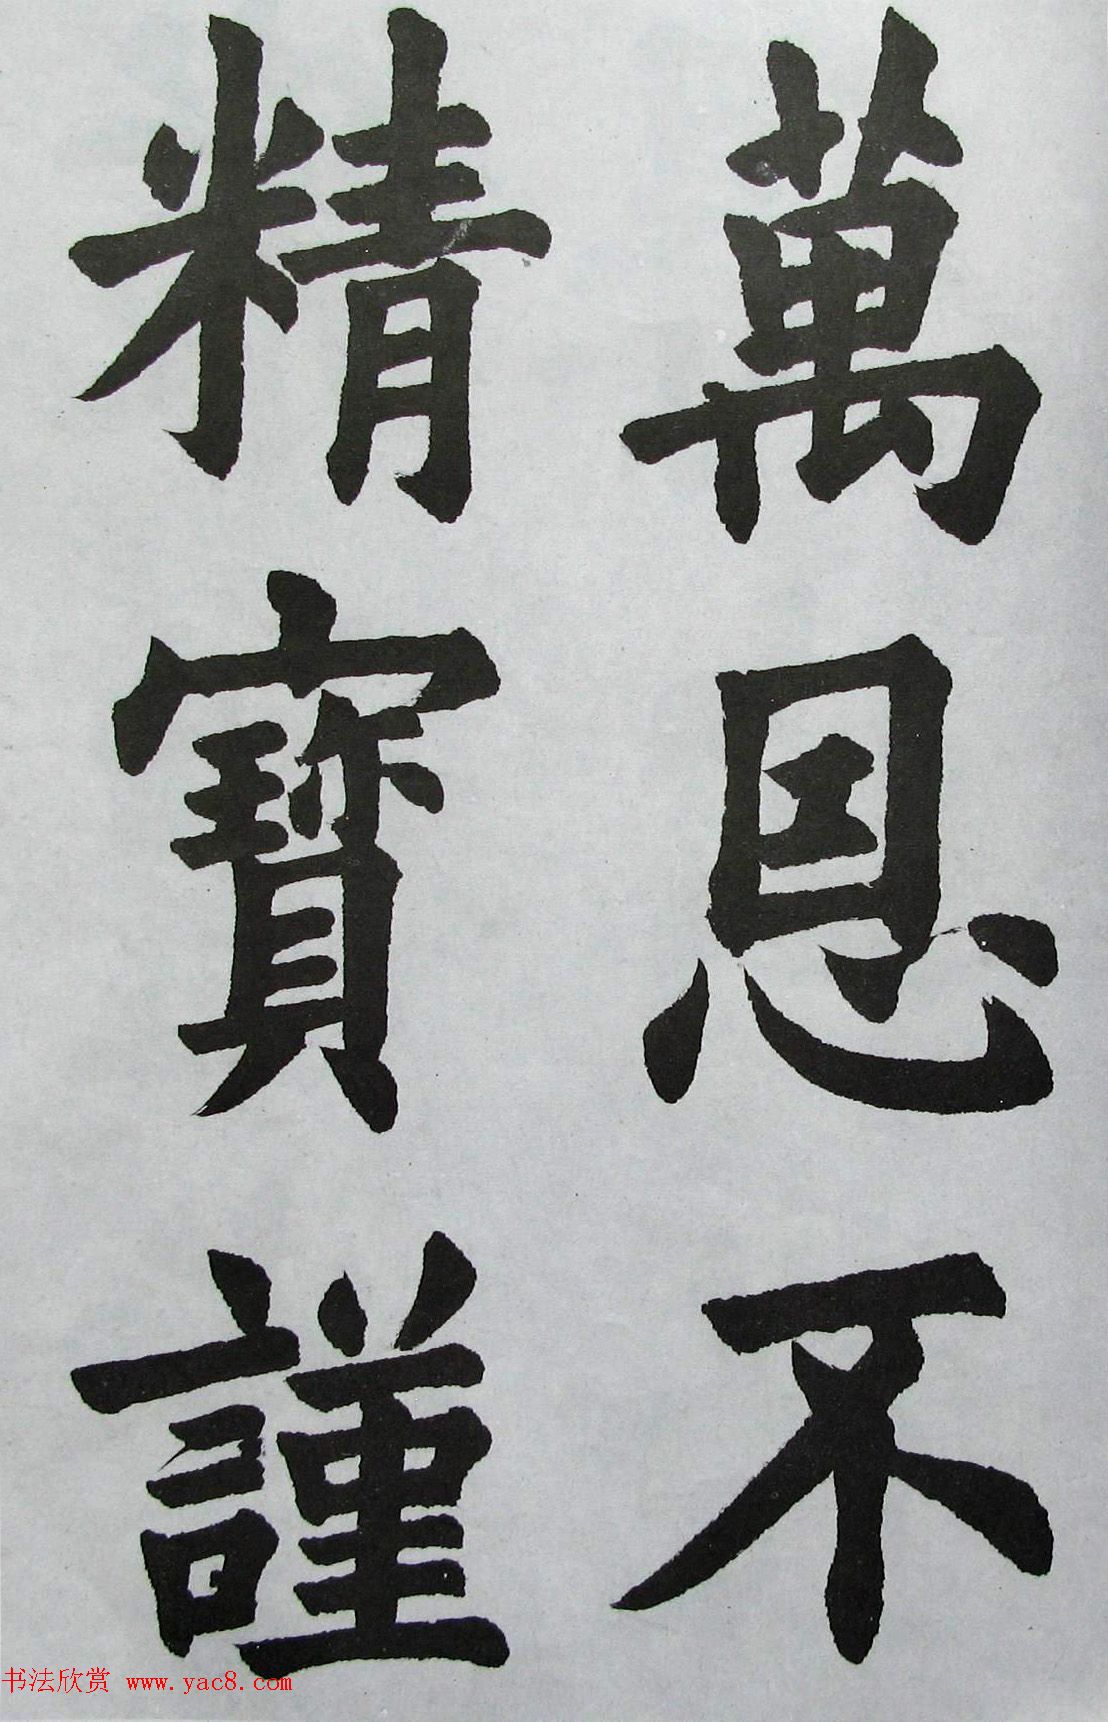 萬恩不
精寶謹
书法欣赏 www.yac8.com